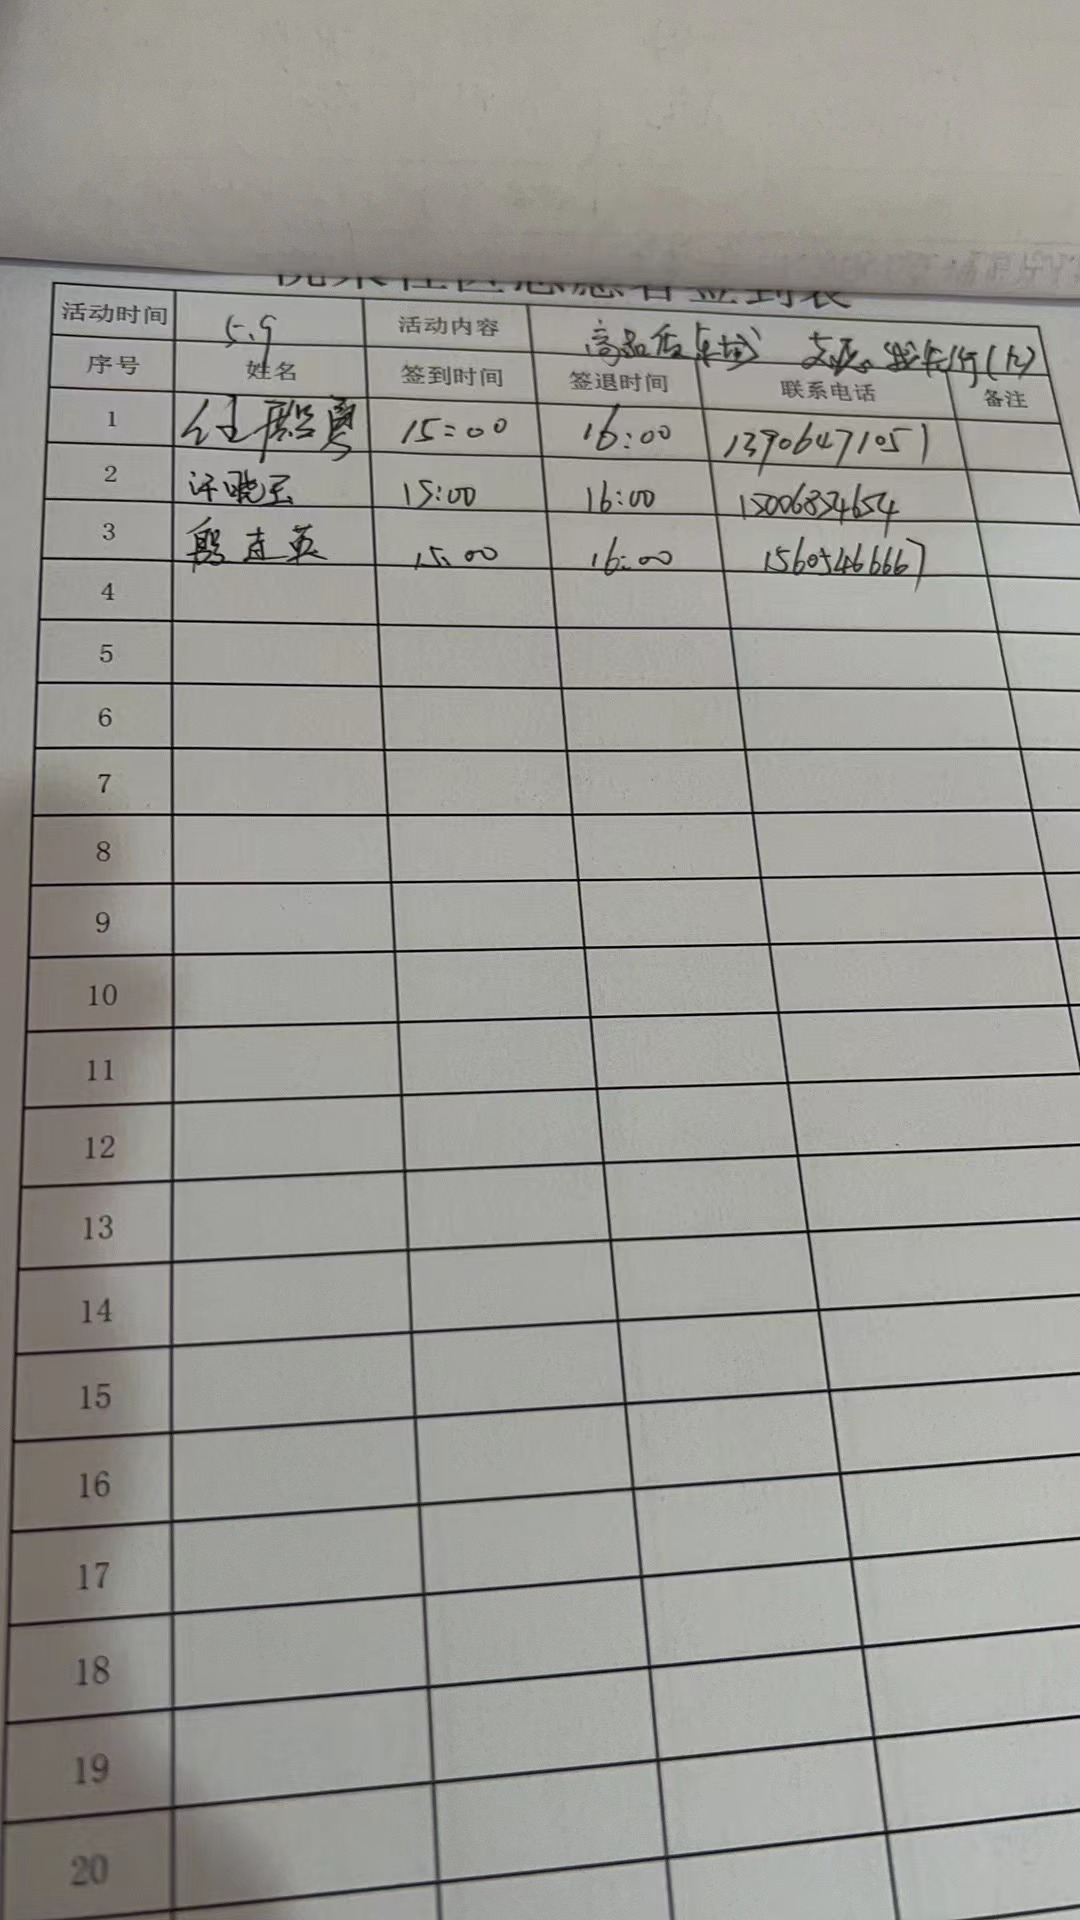 社区志愿者签到表
活动时间 5.9 活动内容 高品质
序号 姓名 签到时间 签退时间 联系电话 备注
1 15:00 16:00 13906471051
2 许晓玉 15:00 16:00 15006834654
3 段 英 15:00 16:00 15605466667
4
5
6
7
8
9
10
11
12
13
14
15
16
17
18
19
20